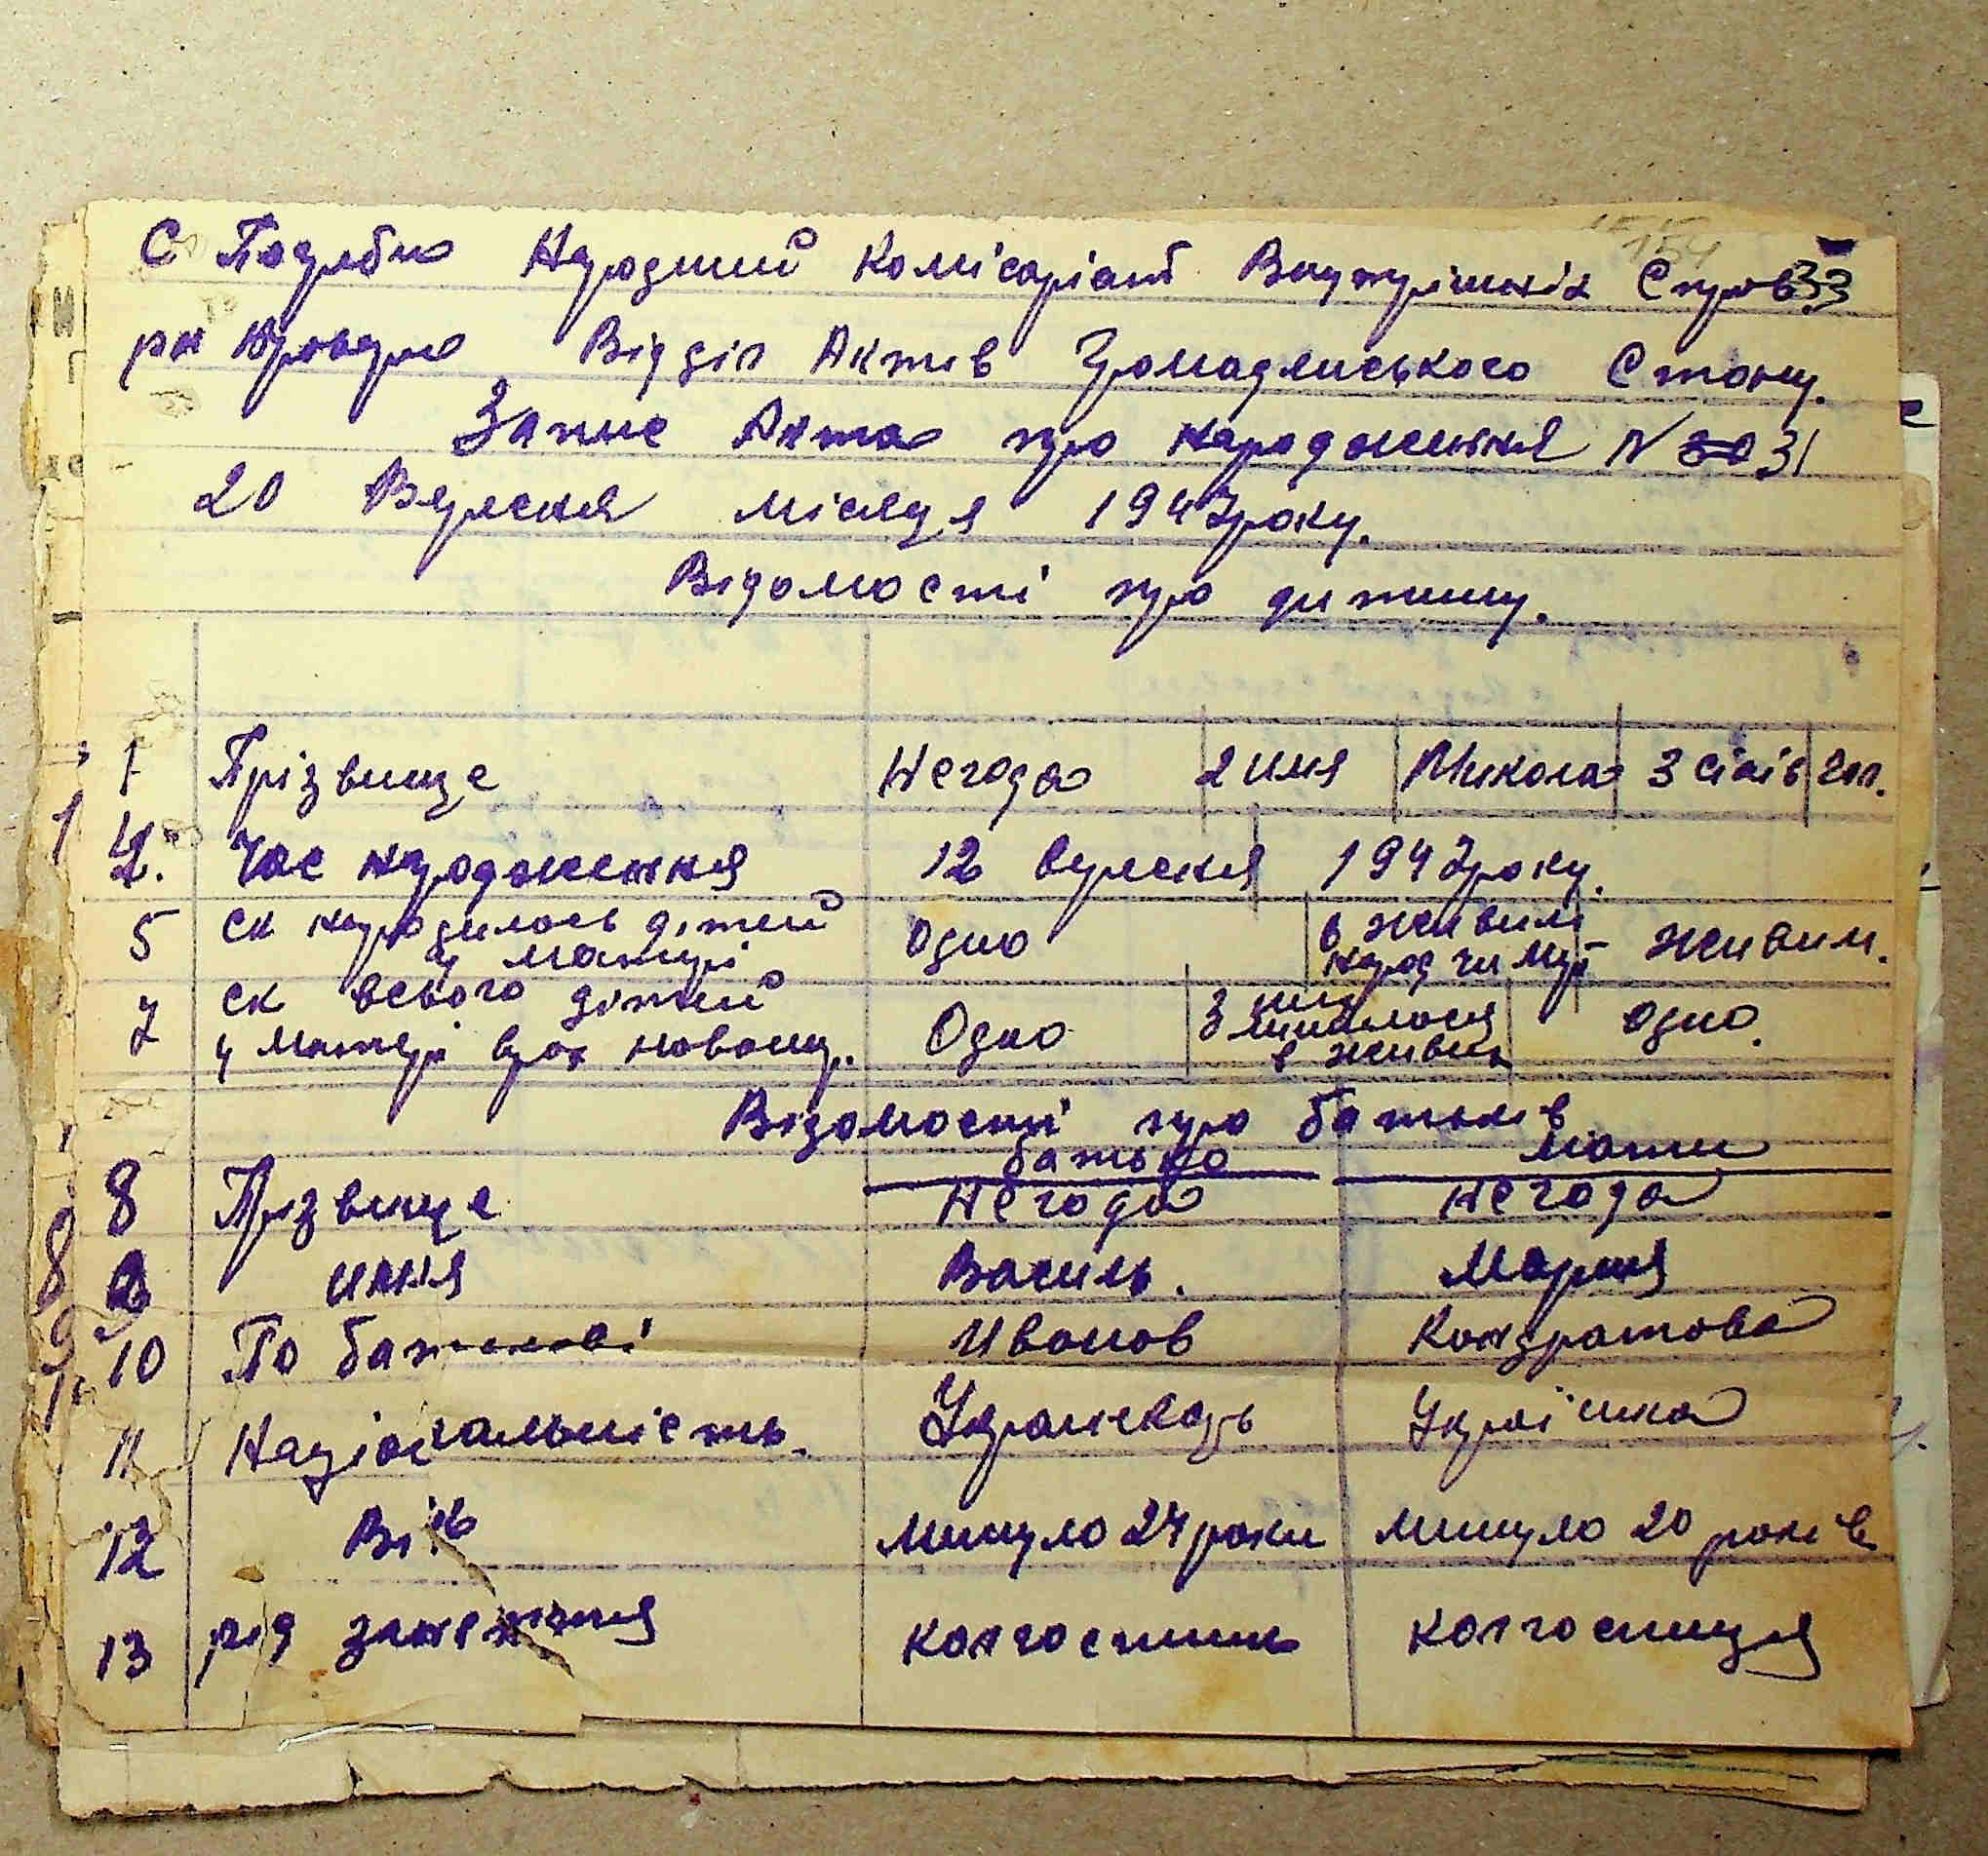 С Погреби Народний Комісаріат Внутрішніх Справ 33
154
рн Бровари Відділ Актів Громадянського Стану.
Запис Акта про народження N 30 31
20 Вересня місяця 1943року.
Відомості про дитину.
1 Прізвище Негода 2 имя Микола 3 стать чол.
4. Час народження 12 вересня 1943року.
5 ск народилось дітей у матері Одно 6 живим народ чи мер живим.
7 ск всього дітей у матері врах новонар. Одно З них лишилося в живих Одно.
Відомості про батьків
батько мати
8 Прізвище Негода Негода
9 имня Василь. Мария
10 По батькові Иванов Кондратова
11 Національність. Украинець Українка
12 Вік минуло 24 роки минуло 20 років
13 рід заняття колгоспник колгоспниця